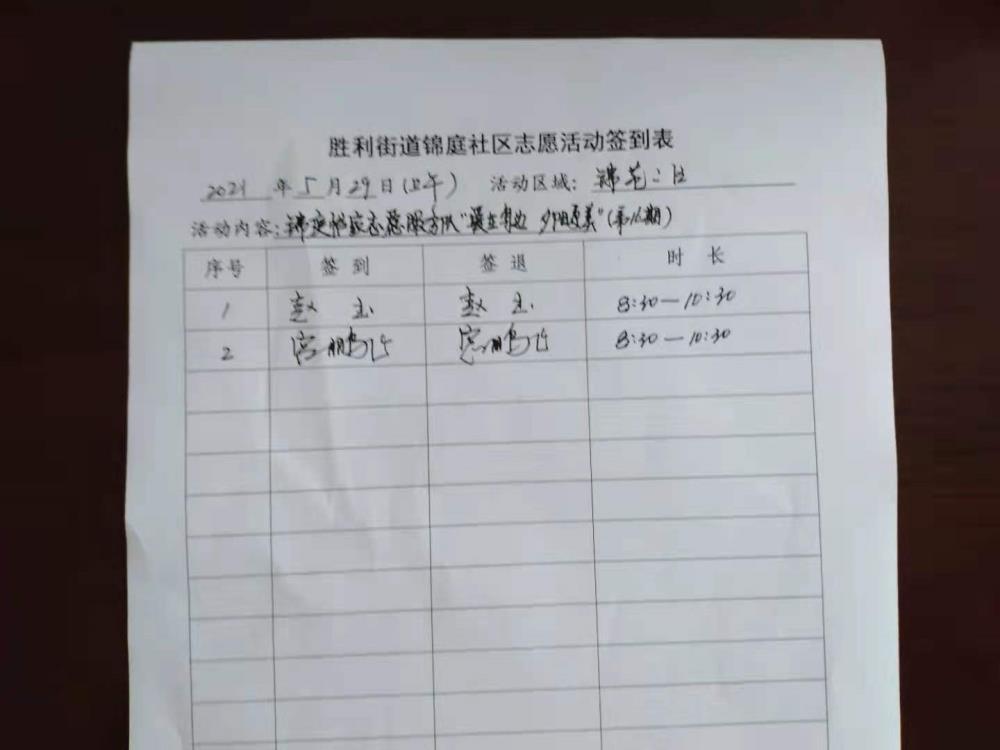 胜利街道锦庭社区志愿活动签到表
2021年5月29日(上午) 活动区域:锦苑二区
活动内容:锦庭 家志愿服务队"爱在身边 夕阳更美"(第16期)
序号 签到 签退 时长
1 赵玉 赵玉 8:30—10:30
2 宫鹏飞 宫鹏飞 8:30—10:30